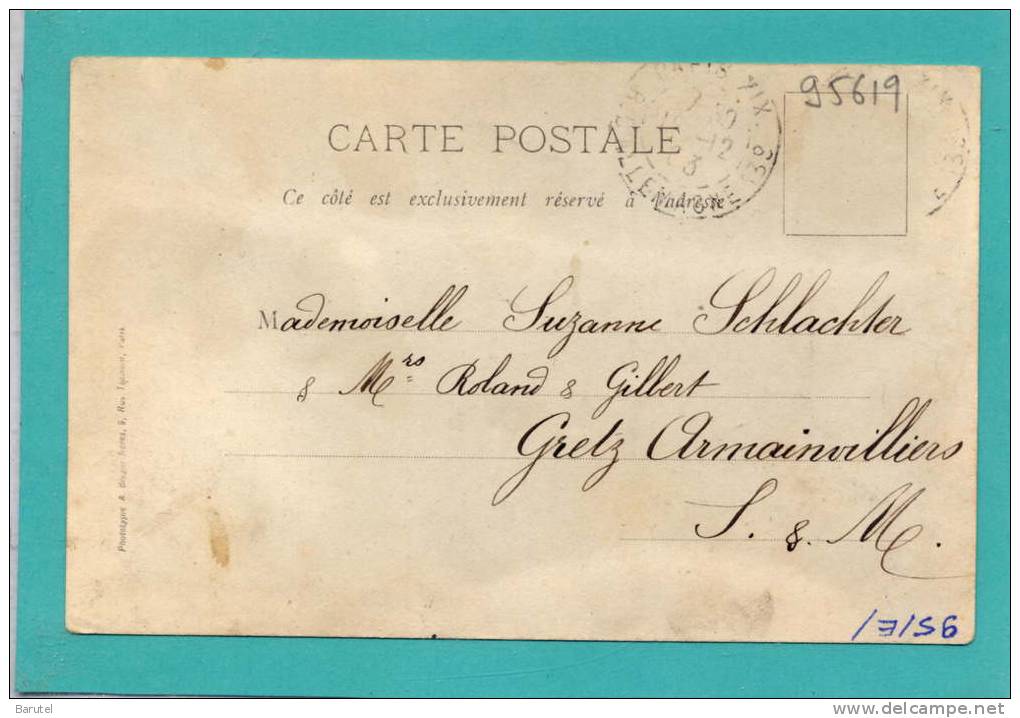 95619
CARTE POSTALE
Ce côté est exclusivement réservé à l'adresse
Mademoiselle Suzanne Schlachter
& Mrs Roland & Gilbert
Gretz Armainvilliers
S. & M.
95/E/
Barutel
www.delcampe.net